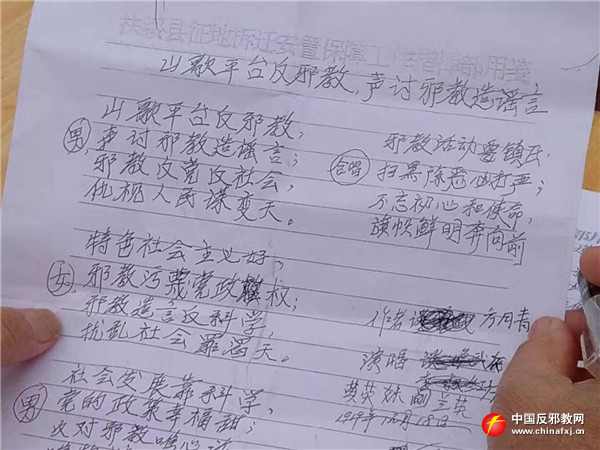 扶绥县征地拆迁安置保障工作指挥部用笺
山歌平台反邪教,声讨邪教造谣言
男
山歌平台反邪教,
声讨邪教造谣言;
邪教反党反社会,
仇视人民谋变天。
女
特色社会主义好,
邪教污蔑党政权;
邪教造言反科学,
扰乱社会罪滔天。
男
社会发展靠科学,
党的政策幸福甜;
反对邪教唯心
合唱
邪教活动要镇压,
扫黑除恶必打严;
不忘初心和使命,
旗帜鲜明奔向前
作者 方月青
演唱
黄英妹
中国反邪教网
www.chinafxj.cn